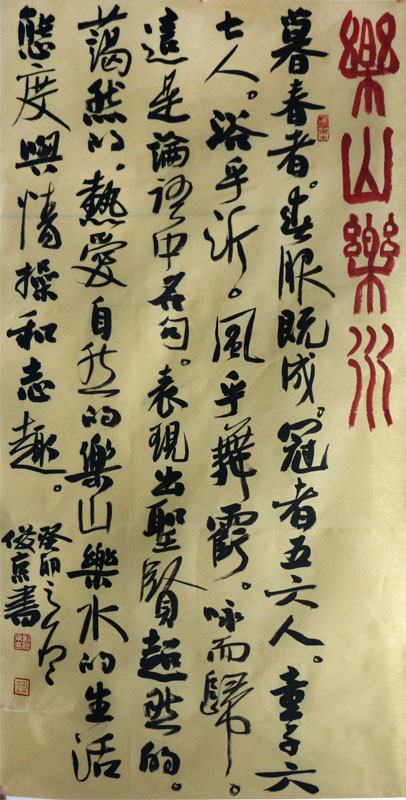 樂山樂水
暮春者。春服既成。冠者五六人。童子六
七人。浴乎沂。風乎舞雩。咏而歸。
這是論語中名句。表現出聖賢超然的。
藹然的，熱愛自然的樂山樂水的生活
態度與情操和志趣。
癸卯之
俊京書